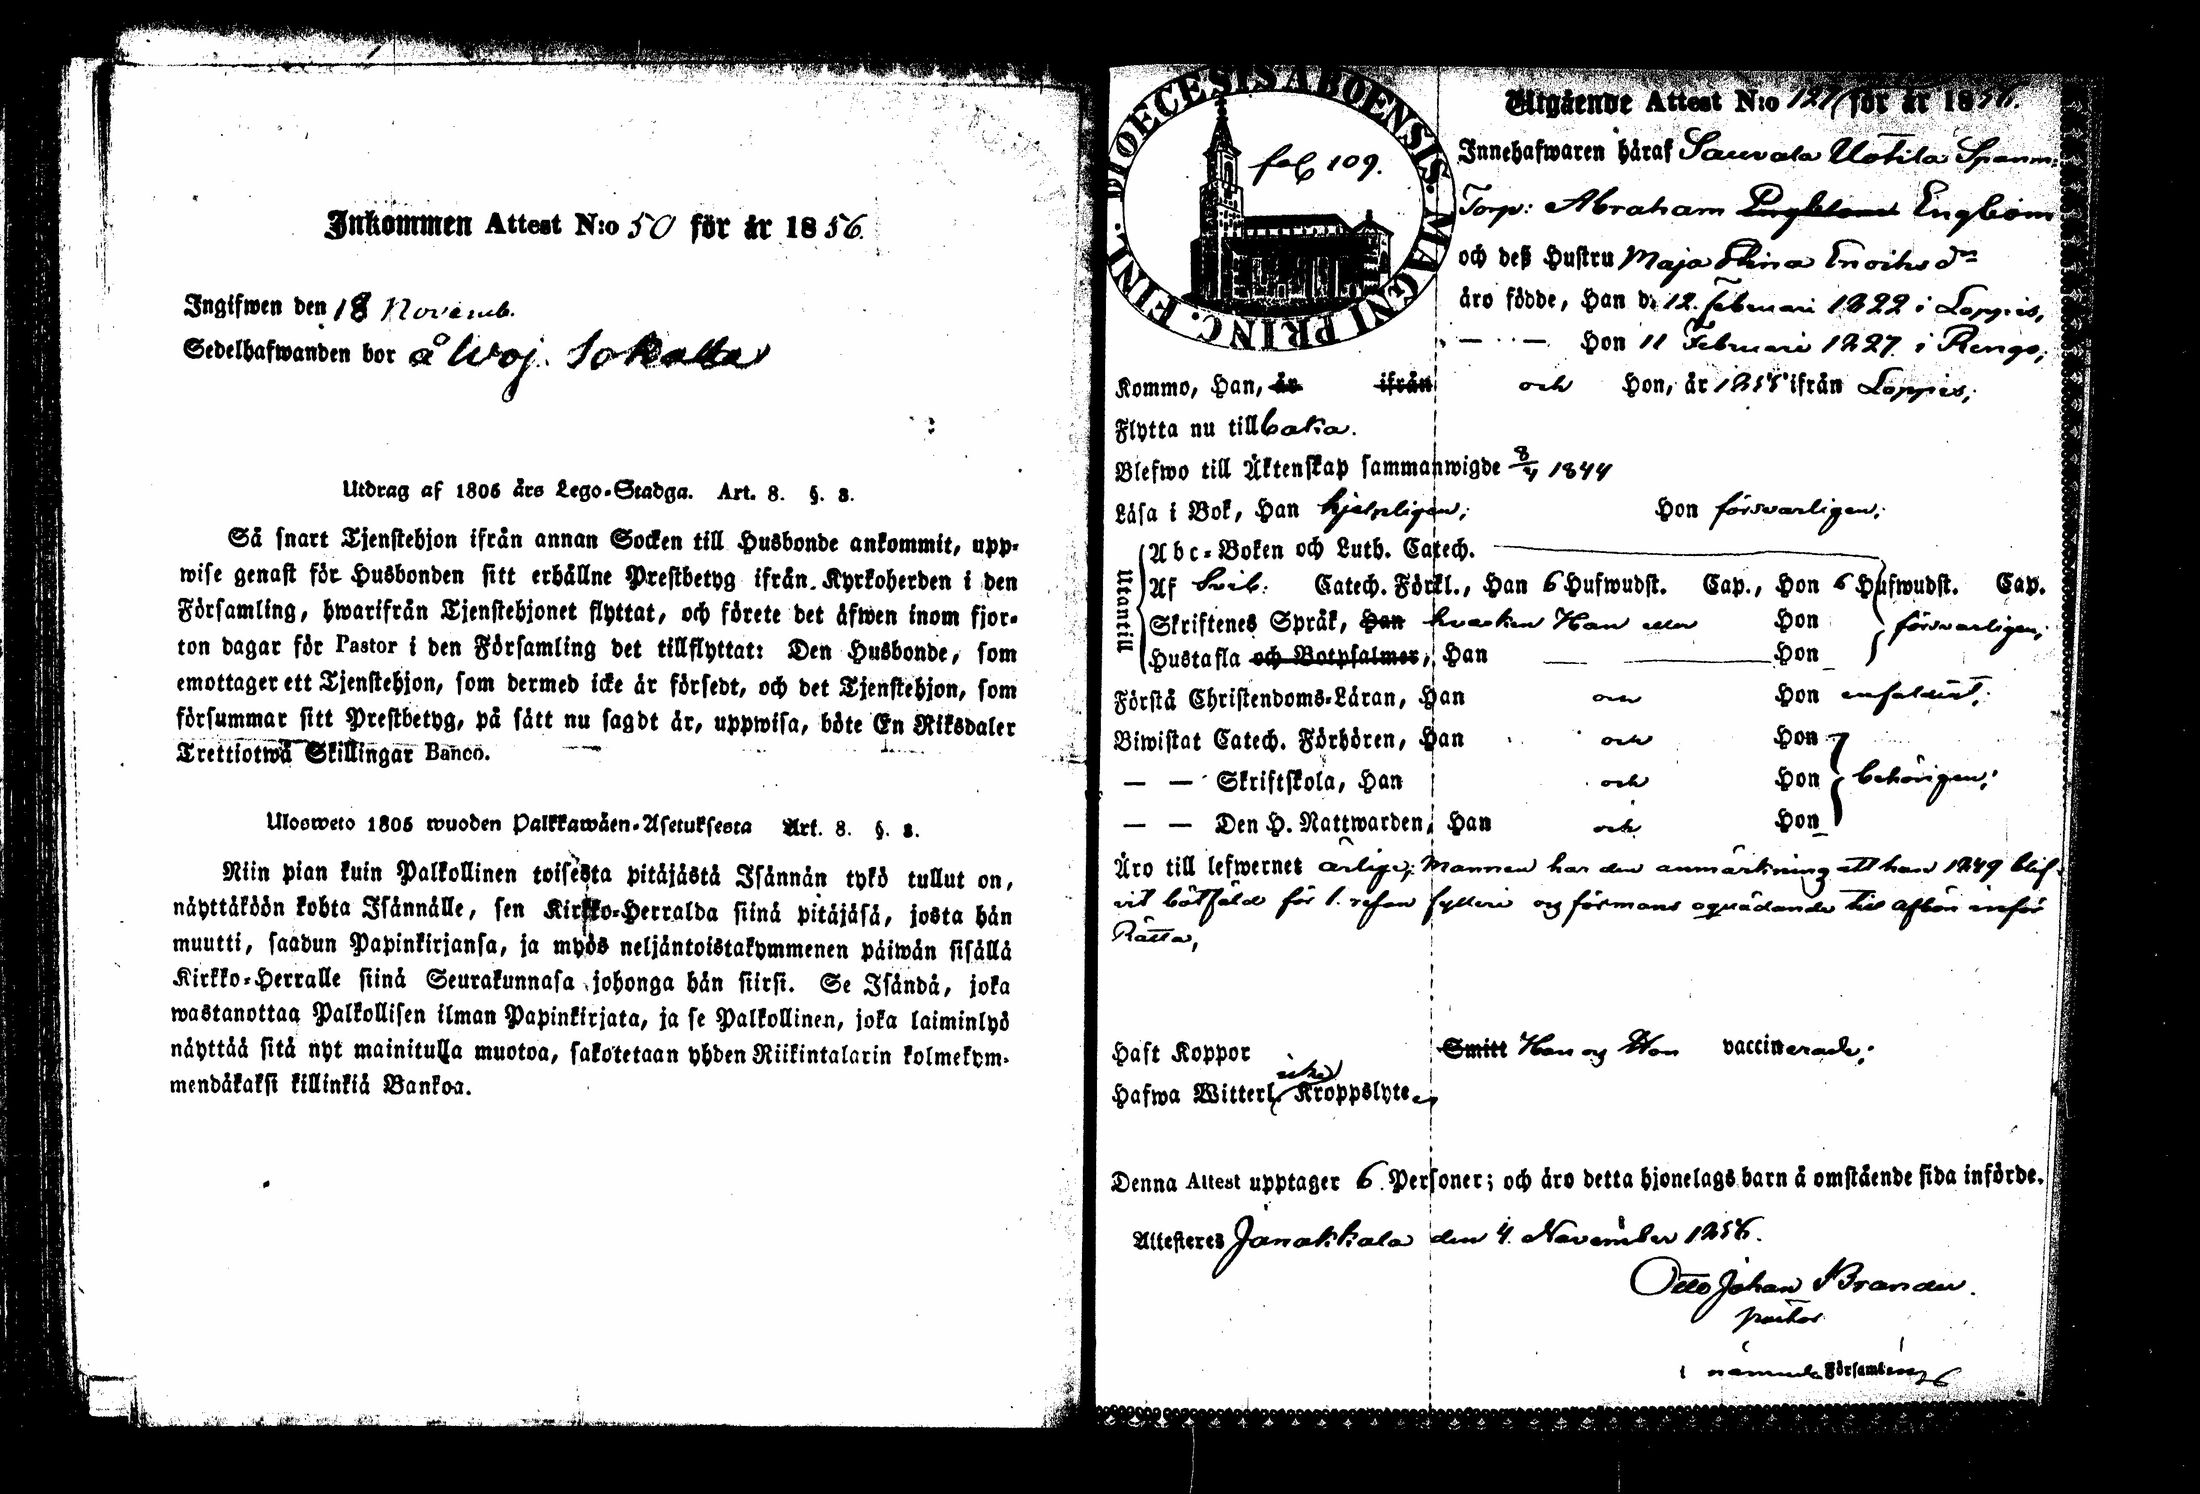 Inkommen Attest N:o 50 för år 1856.
Ingifwen den 18 Novemb.
Sedelhafwanden bor å Woj. Sokalla
Utdrag af 1805 års Lego-Stadga. Art. 8. §. 3.
Så snart Tjenstehjon ifrån annan Socken till Husbonde ankommit, upp-
wise genast för Husbonden sitt erhållne Prestbetyg ifrån Kyrkoherden i den
Församling, hwarifrån Tjenstehjonet flyttat, och förete det äfwen inom fjor-
ton dagar för Pastor i den Församling det tillflyttat: Den Husbonde, som
emottager ett Tjenstehjon, som dermed icke är försedt, och det Tjenstehjon, som
försummar sitt Prestbetyg, på sätt nu sagdt är, uppwisa, böte En Riksdaler
Trettiotwå Skillingar Banco.
Ulosweto 1805 wuoden Palkkawäen-Asetuksesta Art. 8. §. 3.
Niin pian kuin Palkollinen toisesta pitäjästä Isännän tykö tullut on,
näyttäköön kohta Isännälle, sen Kirkko-Herralda siinä pitäjäsä, josta hän
muutti, saadun Papinkirjansa, ja myös neljäntoistakymmenen päiwän sisällä
Kirkko-Herralle siinä Seurakunnasa johonga hän siirsi. Se Isändä, joka
wastanottaa Palkollisen ilman Papinkirjata, ja se Palkollinen, joka laiminlyö
näyttää sitä nyt mainitulla muotoa, sakotetaan yhden Riikintalarin kolmekym-
mendäkaksi killinkiä Bankoa.
FINL. DIOECESIS ABOENSIS. MAGNI PRINC.
fol 109.
Utgående Attest N:o 127 för år 1856.
Innehafwaren häraf Sauvala Uotila Spanm:
Torp: Abraham Engblom
och deß Hustru Maja Stina Enoiksdr
äro födde, Han d. 12. Februari 1822 i Loppis,
— — Hon 11 Februari 1827. i Rengo;
Kommo, Han, år ifrån och Hon, år 1855 ifrån Loppis;
Flytta nu tillbaka.
Blefwo till Äktenskap sammanwigde 8/4 1844
Läsa i Bok, Han hjelpligen; Hon försvarligen;
Utantill
Abc-Boken och Luth. Catech.
Af Svib. Catech. Förkl., Han 6 Hufwudst. Cap., Hon 6 Hufwudst. Cap.
Skriftenes Språk, Han hvarken Han eller Hon försvarligen;
Hustafla och Botpsalmer, Han — Hon
Förstå Christendoms-Läran, Han och Hon enfaldigt;
Biwistat Catech. Förhören, Han och Hon
— — Skriftskola, Han och Hon behörigen;
— — Den H. Nattwarden, Han och Hon
Äro till lefwernet ärlige; Mannen har den anmärkning att han 1849 blif-
vit bötfäld för 1. resan fylleri och förmans oqvädande till afbön inför
Rätta,
Haft Koppor Smitt Han och Hon vaccinerade;
Hafwa Witterl. icke Kroppslyten
Denna Attest upptager 6 Personer; och äro detta hjonelags barn å omstående sida införde.
Attesteres Janakkala den 4. November 1856.
Otto Johan Brander.
pastor
i nämnde Församling